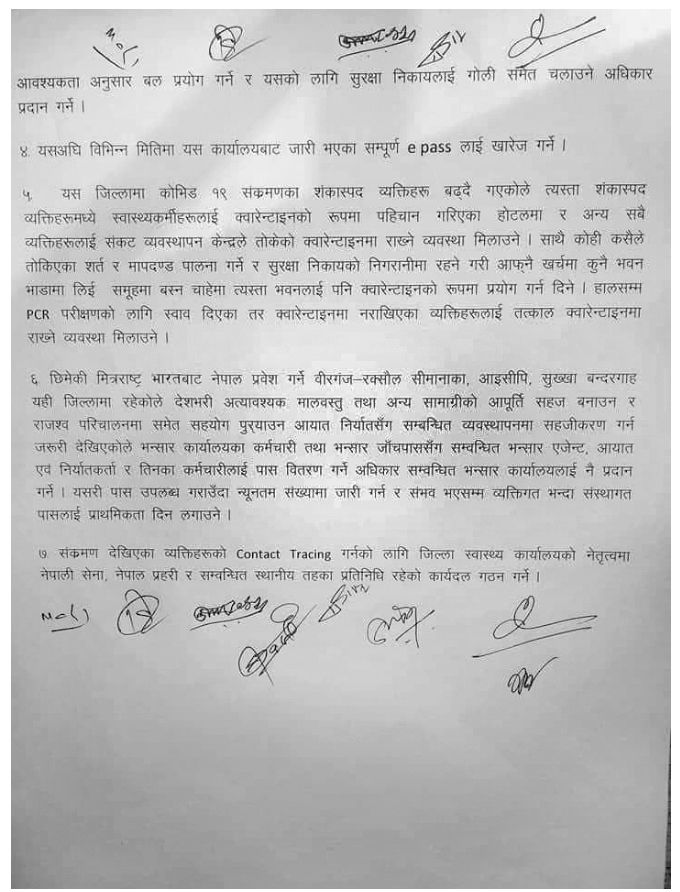 आवश्यकता अनुसार बल प्रयोग गर्ने र यसको लागि सुरक्षा निकायलाई गोली समेत चलाउने अधिकार
प्रदान गर्ने ।
४. यसअघि विभिन्न मितिमा यस कार्यालयबाट जारी भएका सम्पूर्ण e pass लाई खारेज गर्ने ।
५. यस जिल्लामा कोभिड १९ संक्रमणका शंकास्पद व्यक्तिहरू बढ्दै गएकोले त्यस्ता शंकास्पद
व्यक्तिहरूमध्ये स्वास्थ्यकर्मीहरूलाई क्वारेन्टाइनको रूपमा पहिचान गरिएका होटलमा र अन्य सबै
व्यक्तिहरूलाई संकट व्यवस्थापन केन्द्रले तोकेको क्वारेन्टाइनमा राख्ने व्यवस्था मिलाउने । साथै कोही कसैले
तोकिएका शर्त र मापदण्ड पालना गर्ने र सुरक्षा निकायको निगरानीमा रहने गरी आफ्नै खर्चमा कुनै भवन
भाडामा लिई समूहमा बस्न चाहेमा त्यस्ता भवनलाई पनि क्वारेन्टाइनको रूपमा प्रयोग गर्न दिने । हालसम्म
PCR परीक्षणको लागि स्वाव दिएका तर क्वारेन्टाइनमा नराखिएका व्यक्तिहरूलाई तत्काल क्वारेन्टाइनमा
राख्ने व्यवस्था मिलाउने ।
६. छिमेकी मित्रराष्ट्र भारतबाट नेपाल प्रवेश गर्ने वीरगंज–रक्सौल सीमानाका, आइसीपि, सुख्खा बन्दरगाह
यही जिल्लामा रहेकोले देशभरी अत्यावश्यक मालवस्तु तथा अन्य सामाग्रीको आपूर्ति सहज बनाउन र
राजश्व परिचालनमा समेत सहयोग पुर्‍याउन आयात निर्यातसँग सम्बन्धित व्यवस्थापनमा सहजीकरण गर्न
जरूरी देखिएकोले भन्सार कार्यालयका कर्मचारी तथा भन्सार जाँचपाससँग सम्वन्धित भन्सार एजेन्ट, आयात
एवं निर्यातकर्ता र तिनका कर्मचारीलाई पास वितरण गर्ने अधिकार सम्वन्धित भन्सार कार्यालयलाई नै प्रदान
गर्ने । यसरी पास उपलब्ध गराउँदा न्यूनतम संख्यामा जारी गर्न र संभव भएसम्म व्यक्तिगत भन्दा संस्थागत
पासलाई प्राथमिकता दिन लगाउने ।
७. संक्रमण देखिएका व्यक्तिहरूको Contact Tracing गर्नको लागि जिल्ला स्वास्थ्य कार्यालयको नेतृत्वमा
नेपाली सेना, नेपाल प्रहरी र सम्वन्धित स्थानीय तहका प्रतिनिधि रहेको कार्यदल गठन गर्ने ।